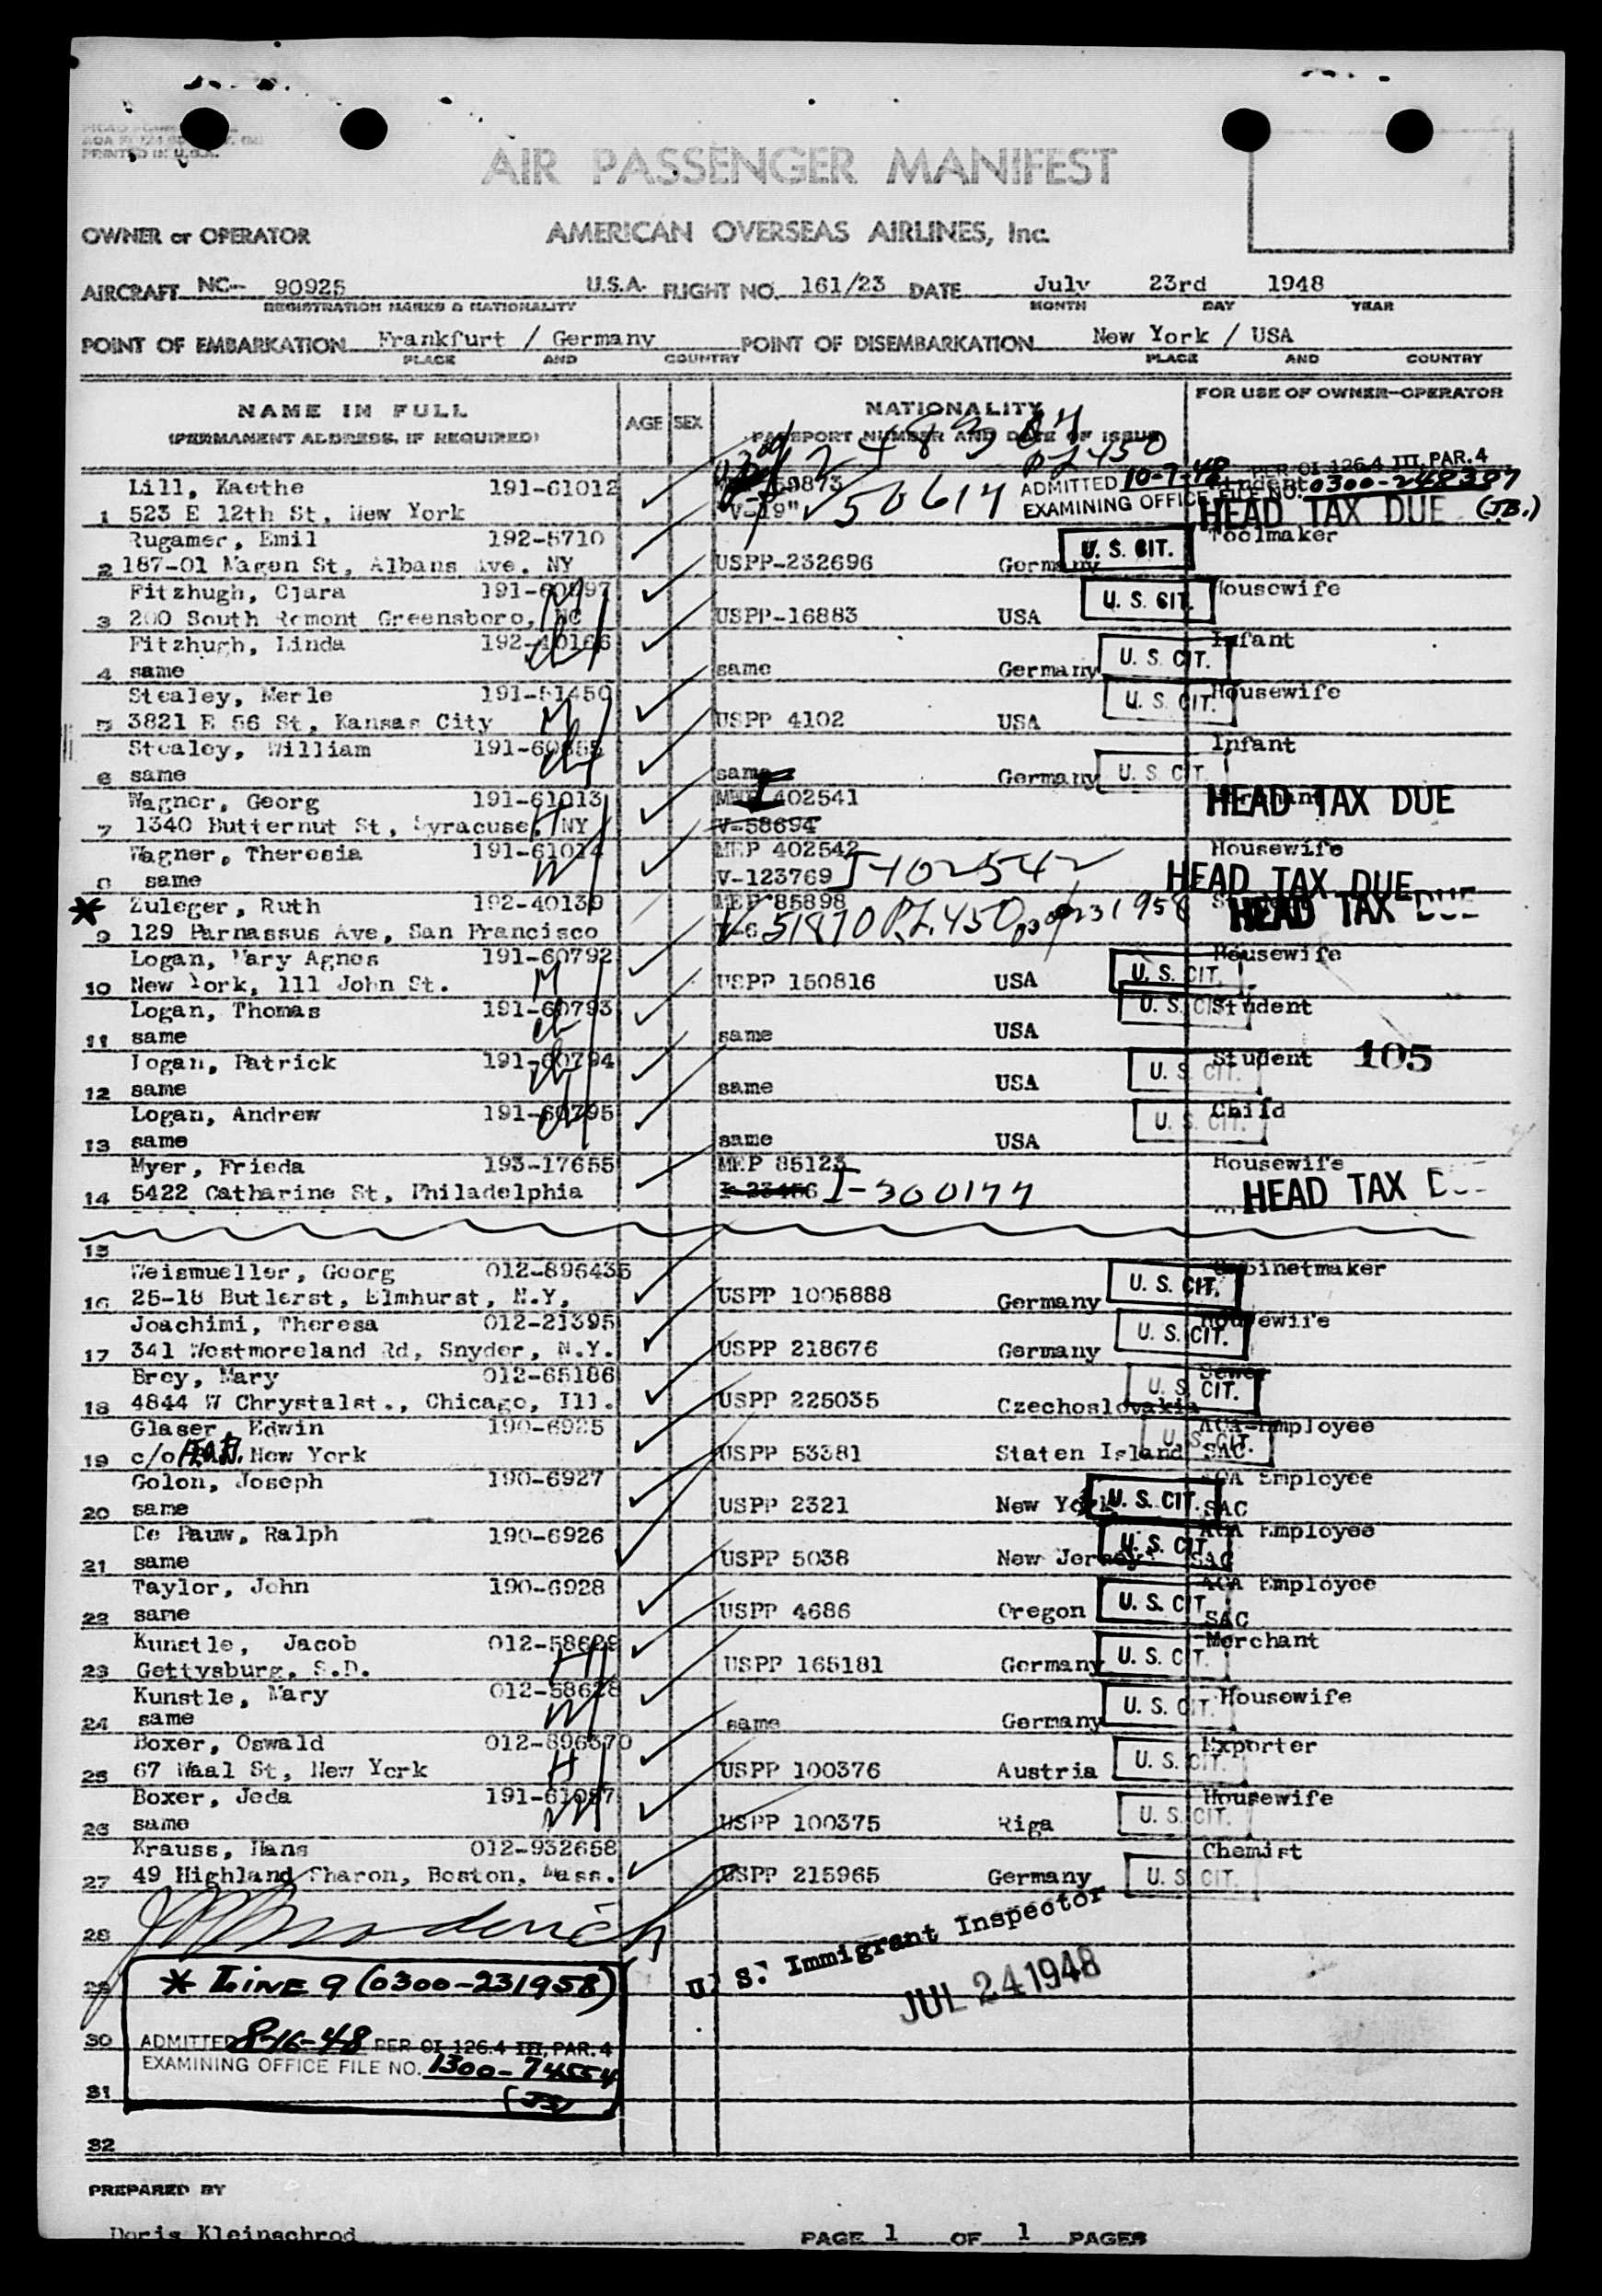 PRINTED IN U.S.A.
AIR PASSENGER MANIFEST
OWNER or OPERATOR AMERICAN OVERSEAS AIRLINES, Inc.
AIRCRAFT NC- 90925 U.S.A. FLIGHT NO. 161/23 DATE July 23rd 1948
REGISTRATION MARKS & NATIONALITY MONTH DAY YEAR
POINT OF EMBARKATION Frankfurt / Germany POINT OF DISEMBARKATION New York / USA
PLACE AND COUNTRY PLACE AND COUNTRY
NAME IN FULL AGE SEX NATIONALITY FOR USE OF OWNER-OPERATOR
(PERMANENT ADDRESS, IF REQUIRED) PASSPORT NUMBER AND DATE OF ISSUE
PL 450
ADMITTED 10-7-48 PER OI 126.4 III, PAR. 4
Lill, Kaethe 191-61012 EXAMINING OFFICE FILE NO. 0300-248387
1 523 E 12th St, New York V-50614 HEAD TAX DUE (JB.)
Rugamer, Emil 192-5710 U. S. CIT. Toolmaker
2 187-01 Nagen St, Albans Ave. NY USPP-232696 Germany
Fitzhugh, Clara 191-60897 M U. S. CIT. Housewife
3 200 South Remont Greensboro, NC USPP-16883 USA
Fitzhugh, Linda 192-40166 ch U. S. CIT. Infant
4 same same Germany
Stealey, Merle 191-51450 M U. S. CIT. Housewife
5 3821 E 56 St, Kansas City USPP 4102 USA
Stealey, William 191-60855 ch Infant
6 same same Germany U. S. CIT.
Wagner, Georg 191-61013 H MEP 402541 I HEAD TAX DUE
7 1340 Butternut St, Syracuse, NY V-58694
Wagner, Theresia 191-61014 W MEP 402542 Housewife
8 same V-123769 I-402542 HEAD TAX DUE
* Zuleger, Ruth 192-40139 MEP 85898 HEAD TAX DUE
9 129 Parnassus Ave, San Francisco V-51870 P.L. 450 0300/231958
Logan, Mary Agnes 191-60792 M U. S. CIT. Housewife
10 New York, 111 John St. USPP 150816 USA
Logan, Thomas 191-60793 ch U. S. CIT. Student
11 same same USA
Logan, Patrick 191-60794 ch U. S. CIT. Student 105
12 same same USA
Logan, Andrew 191-60795 ch U. S. CIT. Child
13 same same USA
Myer, Frieda 193-17655 MEP 85123 Housewife
14 5422 Catharine St, Philadelphia I-23456 I-300177 HEAD TAX DUE
15
Weismueller, Georg 012-896435 U. S. CIT. Cabinetmaker
16 25-18 Butlerst, Elmhurst, N.Y, USPP 1005888 Germany
Joachimi, Theresa 012-21395 U. S. CIT. Housewife
17 341 Westmoreland Rd, Snyder, N.Y. USPP 218676 Germany
Brey, Mary 012-65186 U. S. CIT. Sewer
18 4844 W Chrystalst., Chicago, Ill. USPP 225035 Czechoslovakia
Glaser, Edwin 190-6925 U. S. CIT. AOA-Employee
19 c/o New York USPP 53381 Staten Island SAC
Golon, Joseph 190-6927 U. S. CIT. AOA Employee
20 same USPP 2321 New York SAC
De Pauw, Ralph 190-6926 U. S. CIT. AOA Employee
21 same USPP 5038 New Jersey SAC
Taylor, John 190-6928 U. S. CIT. AOA Employee
22 same USPP 4686 Oregon SAC
Kunstle, Jacob 012-58629 H U. S. CIT. Merchant
23 Gettysburg, S.D. USPP 165181 Germany
Kunstle, Mary 012-58628 W U. S. CIT. Housewife
24 same same Germany
Boxer, Oswald 012-896370 H U. S. CIT. Exporter
25 67 Waal St, New York USPP 100376 Austria
Boxer, Jeda 191-61087 W U. S. CIT. Housewife
26 same USPP 100375 Riga
Krauss, Hans 012-932658 Chemist
27 49 Highland Sharon, Boston, Mass. USPP 215965 Germany U. S. CIT.
28
U. S. Immigrant Inspector
29 * LINE 9 (0300-231958) JUL 24 1948
30 ADMITTED 8-16-48 PER OI 126.4 III, PAR. 4
EXAMINING OFFICE FILE NO. 1300-74554
31
32
PREPARED BY
Doris Kleinschrod PAGE 1 OF 1 PAGES